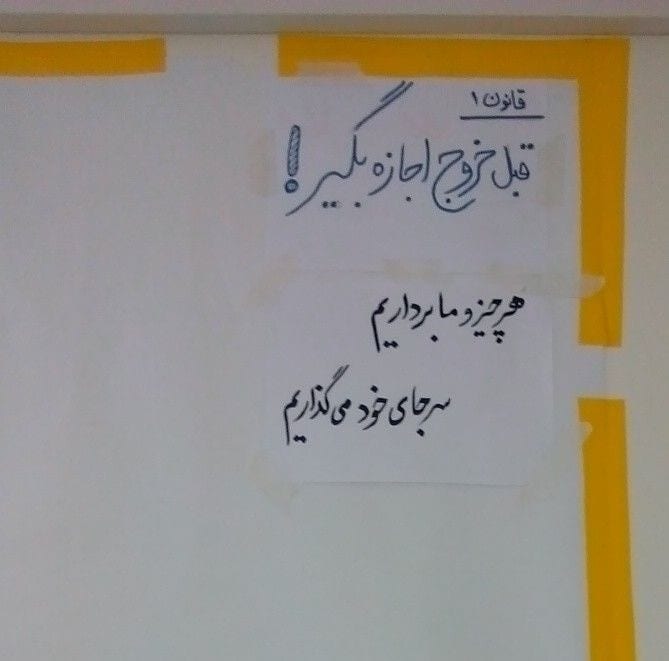 قانون ۱
قبل خروج اجازه بگیر!
هرچیزو ما برداریم
سرجای خود می‌گذاریم